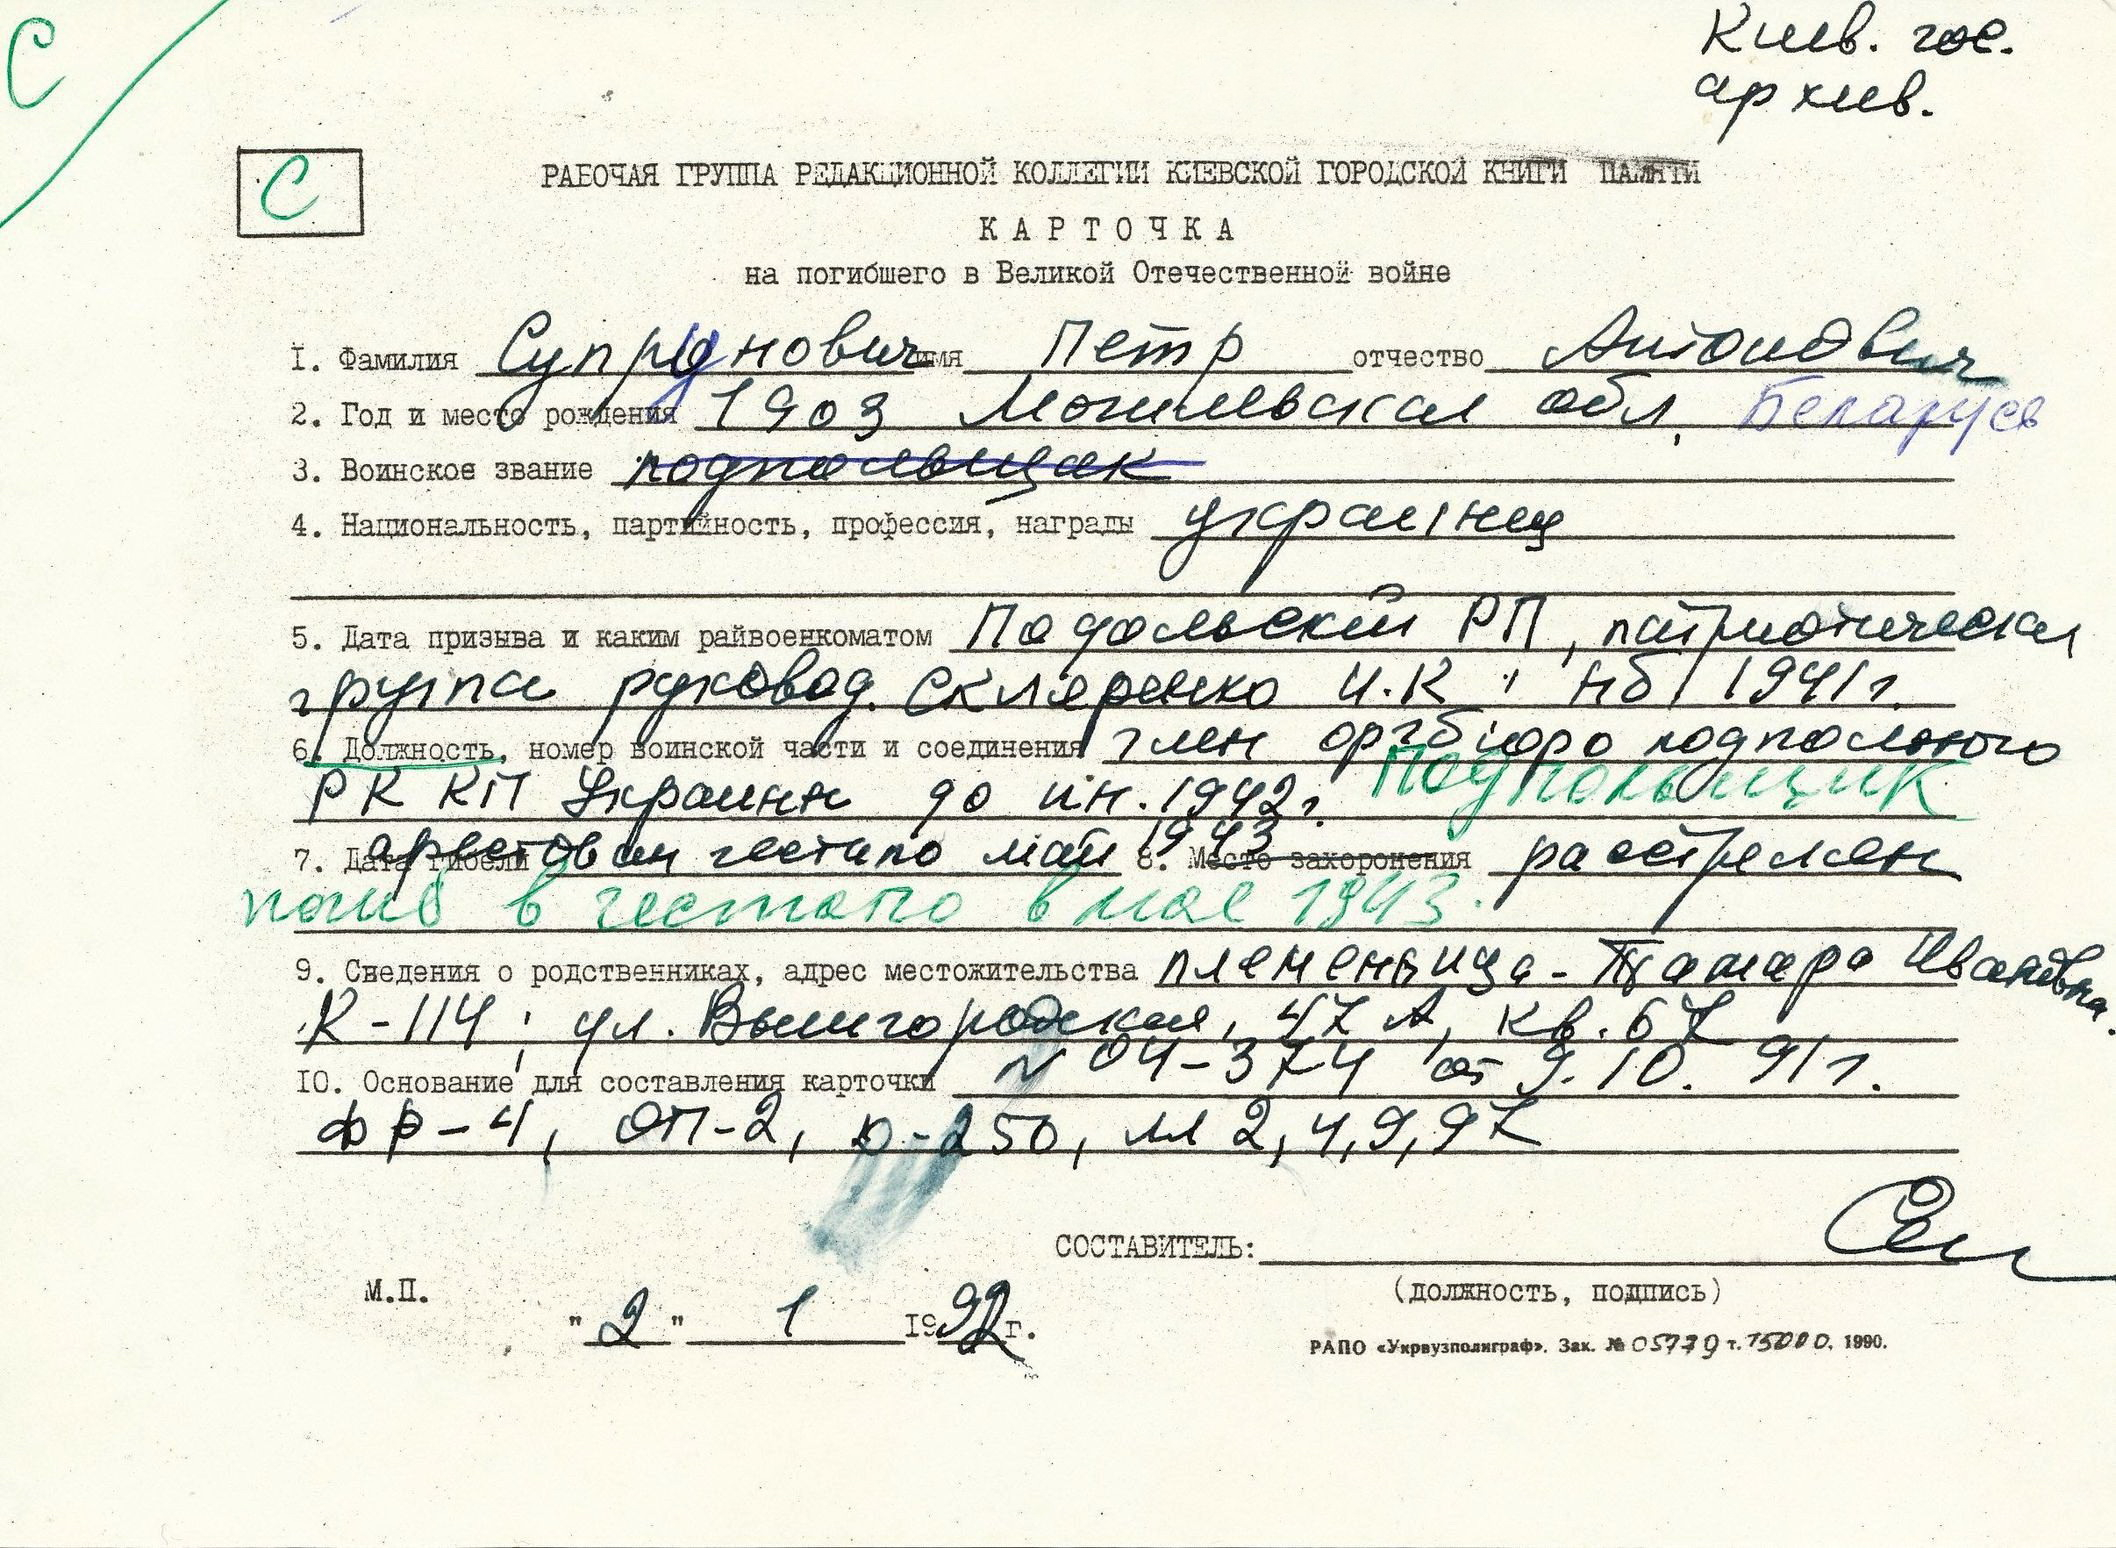 С
Киев. гос.
архив.
С
РАБОЧАЯ ГРУППА РЕДАКЦИОННОЙ КОЛЛЕГИИ КИЕВСКОЙ ГОРОДСКОЙ КНИГИ ПАМЯТИ
КАРТОЧКА
на погибшего в Великой Отечественной войне
1. Фамилия Супрунович имя Петр отчество Антонович
2. Год и место рождения 1903 Могилевская обл. Беларусь
3. Воинское звание подпольщик
4. Национальность, партийность, профессия, награды украинец
5. Дата призыва и каким райвоенкоматом Подольский РП, патриотическая
группа руковод. Скляренко И.К; 1941 г.
6. Должность, номер воинской части и соединения член оргбюро подпольного
РК КП Украины до 1942 г. Подпольщик
7. Дата гибели арестован гестапо май 1943 8. Место захоронения расстрелян
погиб в гестапо в мае 1943.
9. Сведения о родственниках, адрес местожительства племенница - Тамара Ивановна.
К-114; ул. Вышгородская, 47 А, кв. 67
10. Основание для составления карточки N 04-374 от 9.10.91 г.
фР-4, оп-2, д-250, лл 2,4,9,97
СОСТАВИТЕЛЬ:
(должность, подпись)
М.П.
"2" 1 1992 г.
РАПО «Укрвузполиграф». Зак. № 05779 т. 15000. 1990.